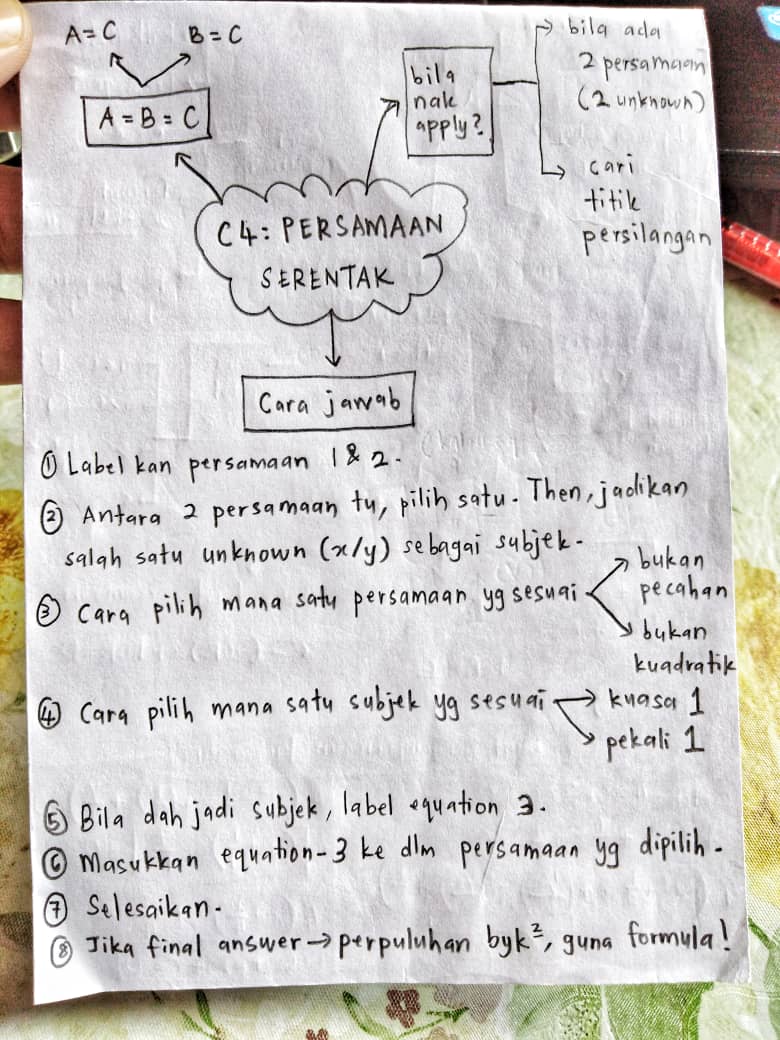 A = C
B = C
A = B = C
bila
nak
apply?
bila ada
2 persamaan
(2 unknown)
cari
titik
persilangan
C4: PERSAMAAN
SERENTAK
Cara jawab
① Label kan persamaan 1 & 2.
② Antara 2 persamaan tu, pilih satu. Then, jadikan
salah satu unknown (x/y) sebagai subjek.
③ Cara pilih mana satu persamaan yg sesuai
bukan
pecahan
bukan
kuadratik
④ Cara pilih mana satu subjek yg sesuai
kuasa 1
pekali 1
⑤ Bila dah jadi subjek, label equation 3.
⑥ Masukkan equation-3 ke dlm persamaan yg dipilih.
⑦ Selesaikan.
⑧ Jika final answer → perpuluhan byk², guna formula!